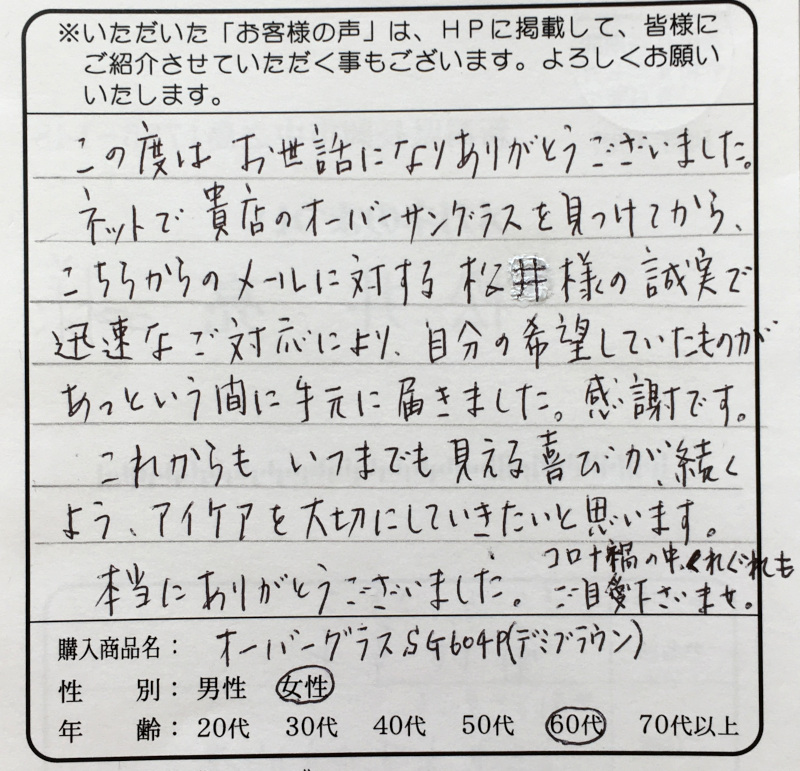 ※いただいた「お客様の声」は、ＨＰに掲載して、皆様に
ご紹介させていただく事もございます。よろしくお願い
いたします。
この度は お世話になりありがとうございました。
ネットで 貴店のオーバーサングラスを見つけてから、
こちらからのメールに対する 松井様の誠実で
迅速なご対応により、自分の希望していたものが
あっという間に手元に届きました。感謝です。
これからも いつまでも見える喜びが、続く
よう、アイケアを大切にしていきたいと思います。
本当にありがとうございました。
コロナ禍の中、くれぐれも
ご自愛下さいませ。
購入商品名： オーバーグラスSG604P(デミブラウン)
性　　別： 男性 女性
年　　齢： 20代 30代 40代 50代 60代 70代以上